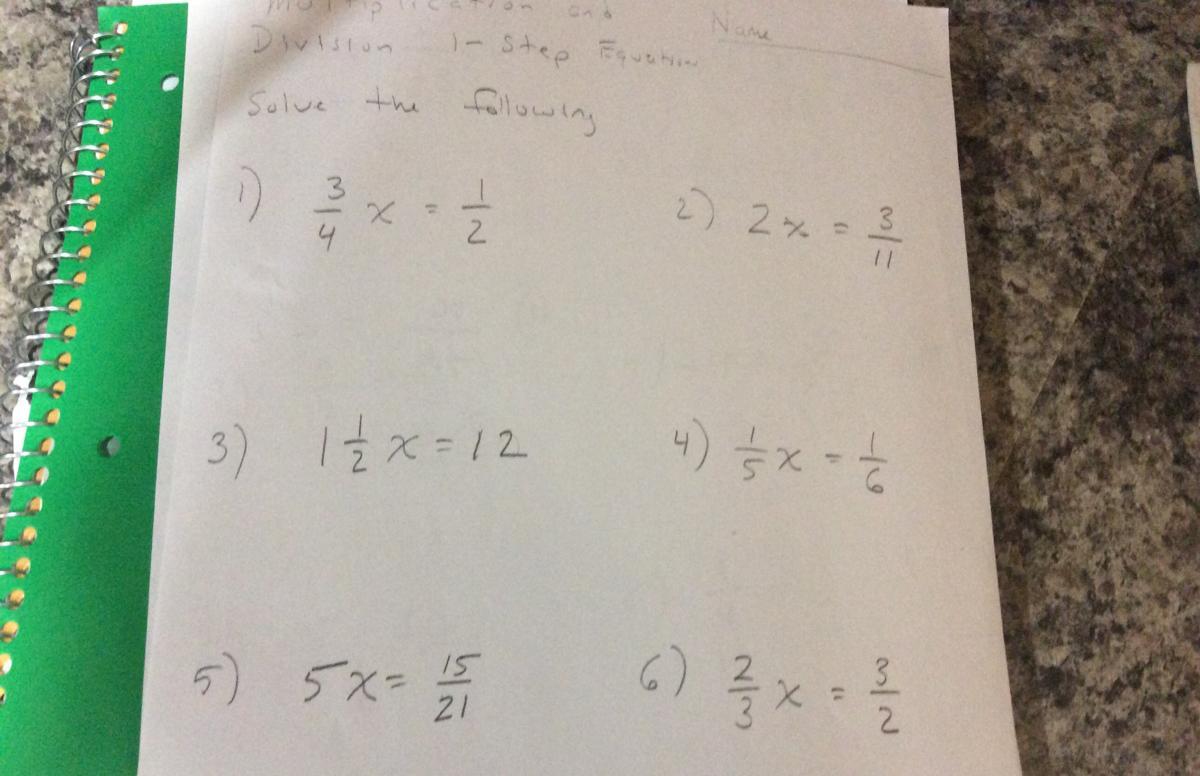 Multiplication and
Division 1-Step Equation
Name
Solve the following
1) 3/4 x = 1/2
2) 2x = 3/11
3) 1 1/2 x = 12
4) 1/5 x = 1/6
5) 5x = 15/21
6) 2/3 x = 3/2